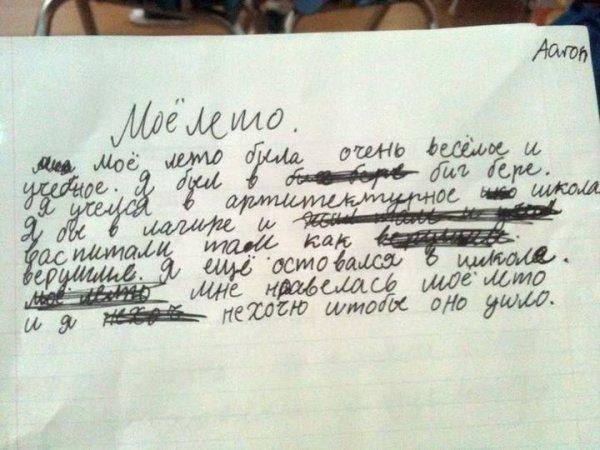 Aaron
Моё лето.
моё лето была очень весёлое и
учебное. Я был в биг бере.
Я учелся в артитектурное школа
Я бы в лагире и
васпитали там как
верушие. Я ещё оставался в школе.
мне нравелась моё лето
и я нехочю штобы оно ушло.